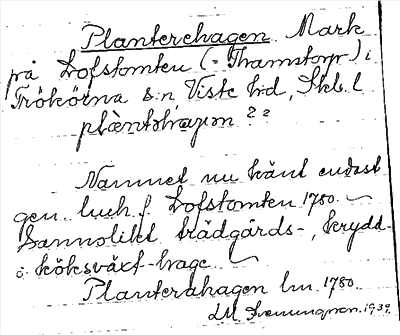 Plantereshagen. Mark
på Lofstomten (= Thamstorp) i
Trökörna s:n, Viste h:d, Skb. l
plànteʃhaɡ̵ən ??
Namnet nu känt endast
gen. lush. f. Lofstomten 1780.
Sannolikt trädgårds-, krydd-
o. köksväxt-hage
Planterahagen lm. 1780.
1939.